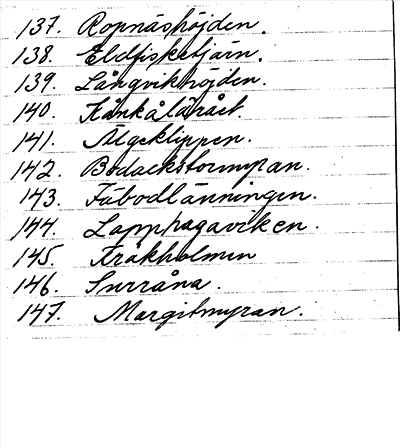 137. Ropnäshöjden.
138. Eldfisketjärn.
139. Långvikhöjden.
140.
141. Älgklippen.
142.
143. Fäbodlänningen.
144. Lapphagaviken.
145. Kråkholmen
146. Surråna.
147. Margitmyran.